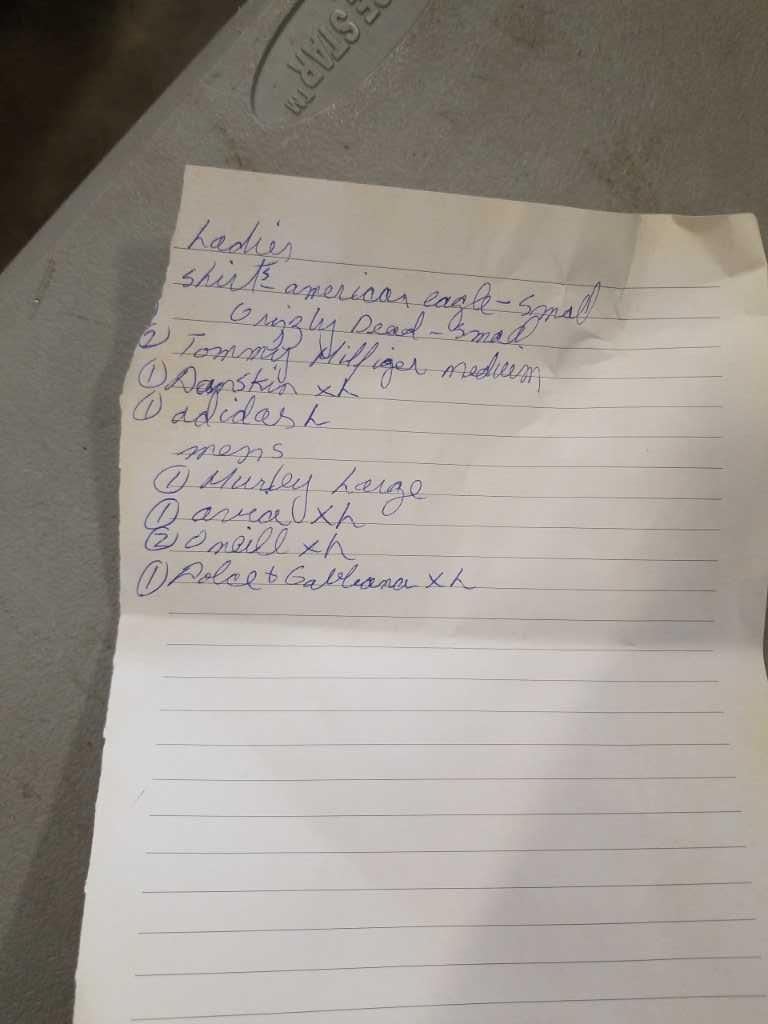 E STAR™
Ladies
shirts - american eagle - small
Grizly Dead - Small
② Tommy Hilfiger medium
① Danskin XL
① adidas L
mens
① Hurley Large
① avia XL
② Oneill XL
① Dolce & Gabbana XL